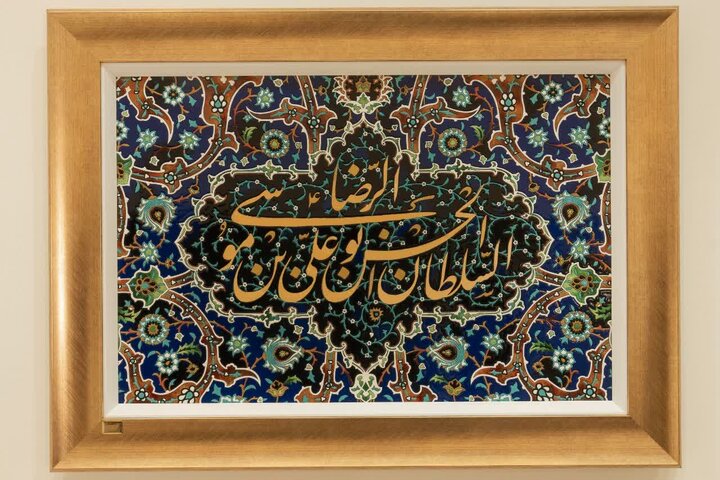 السلطان ابوالحسن علی بن موسی الرضا